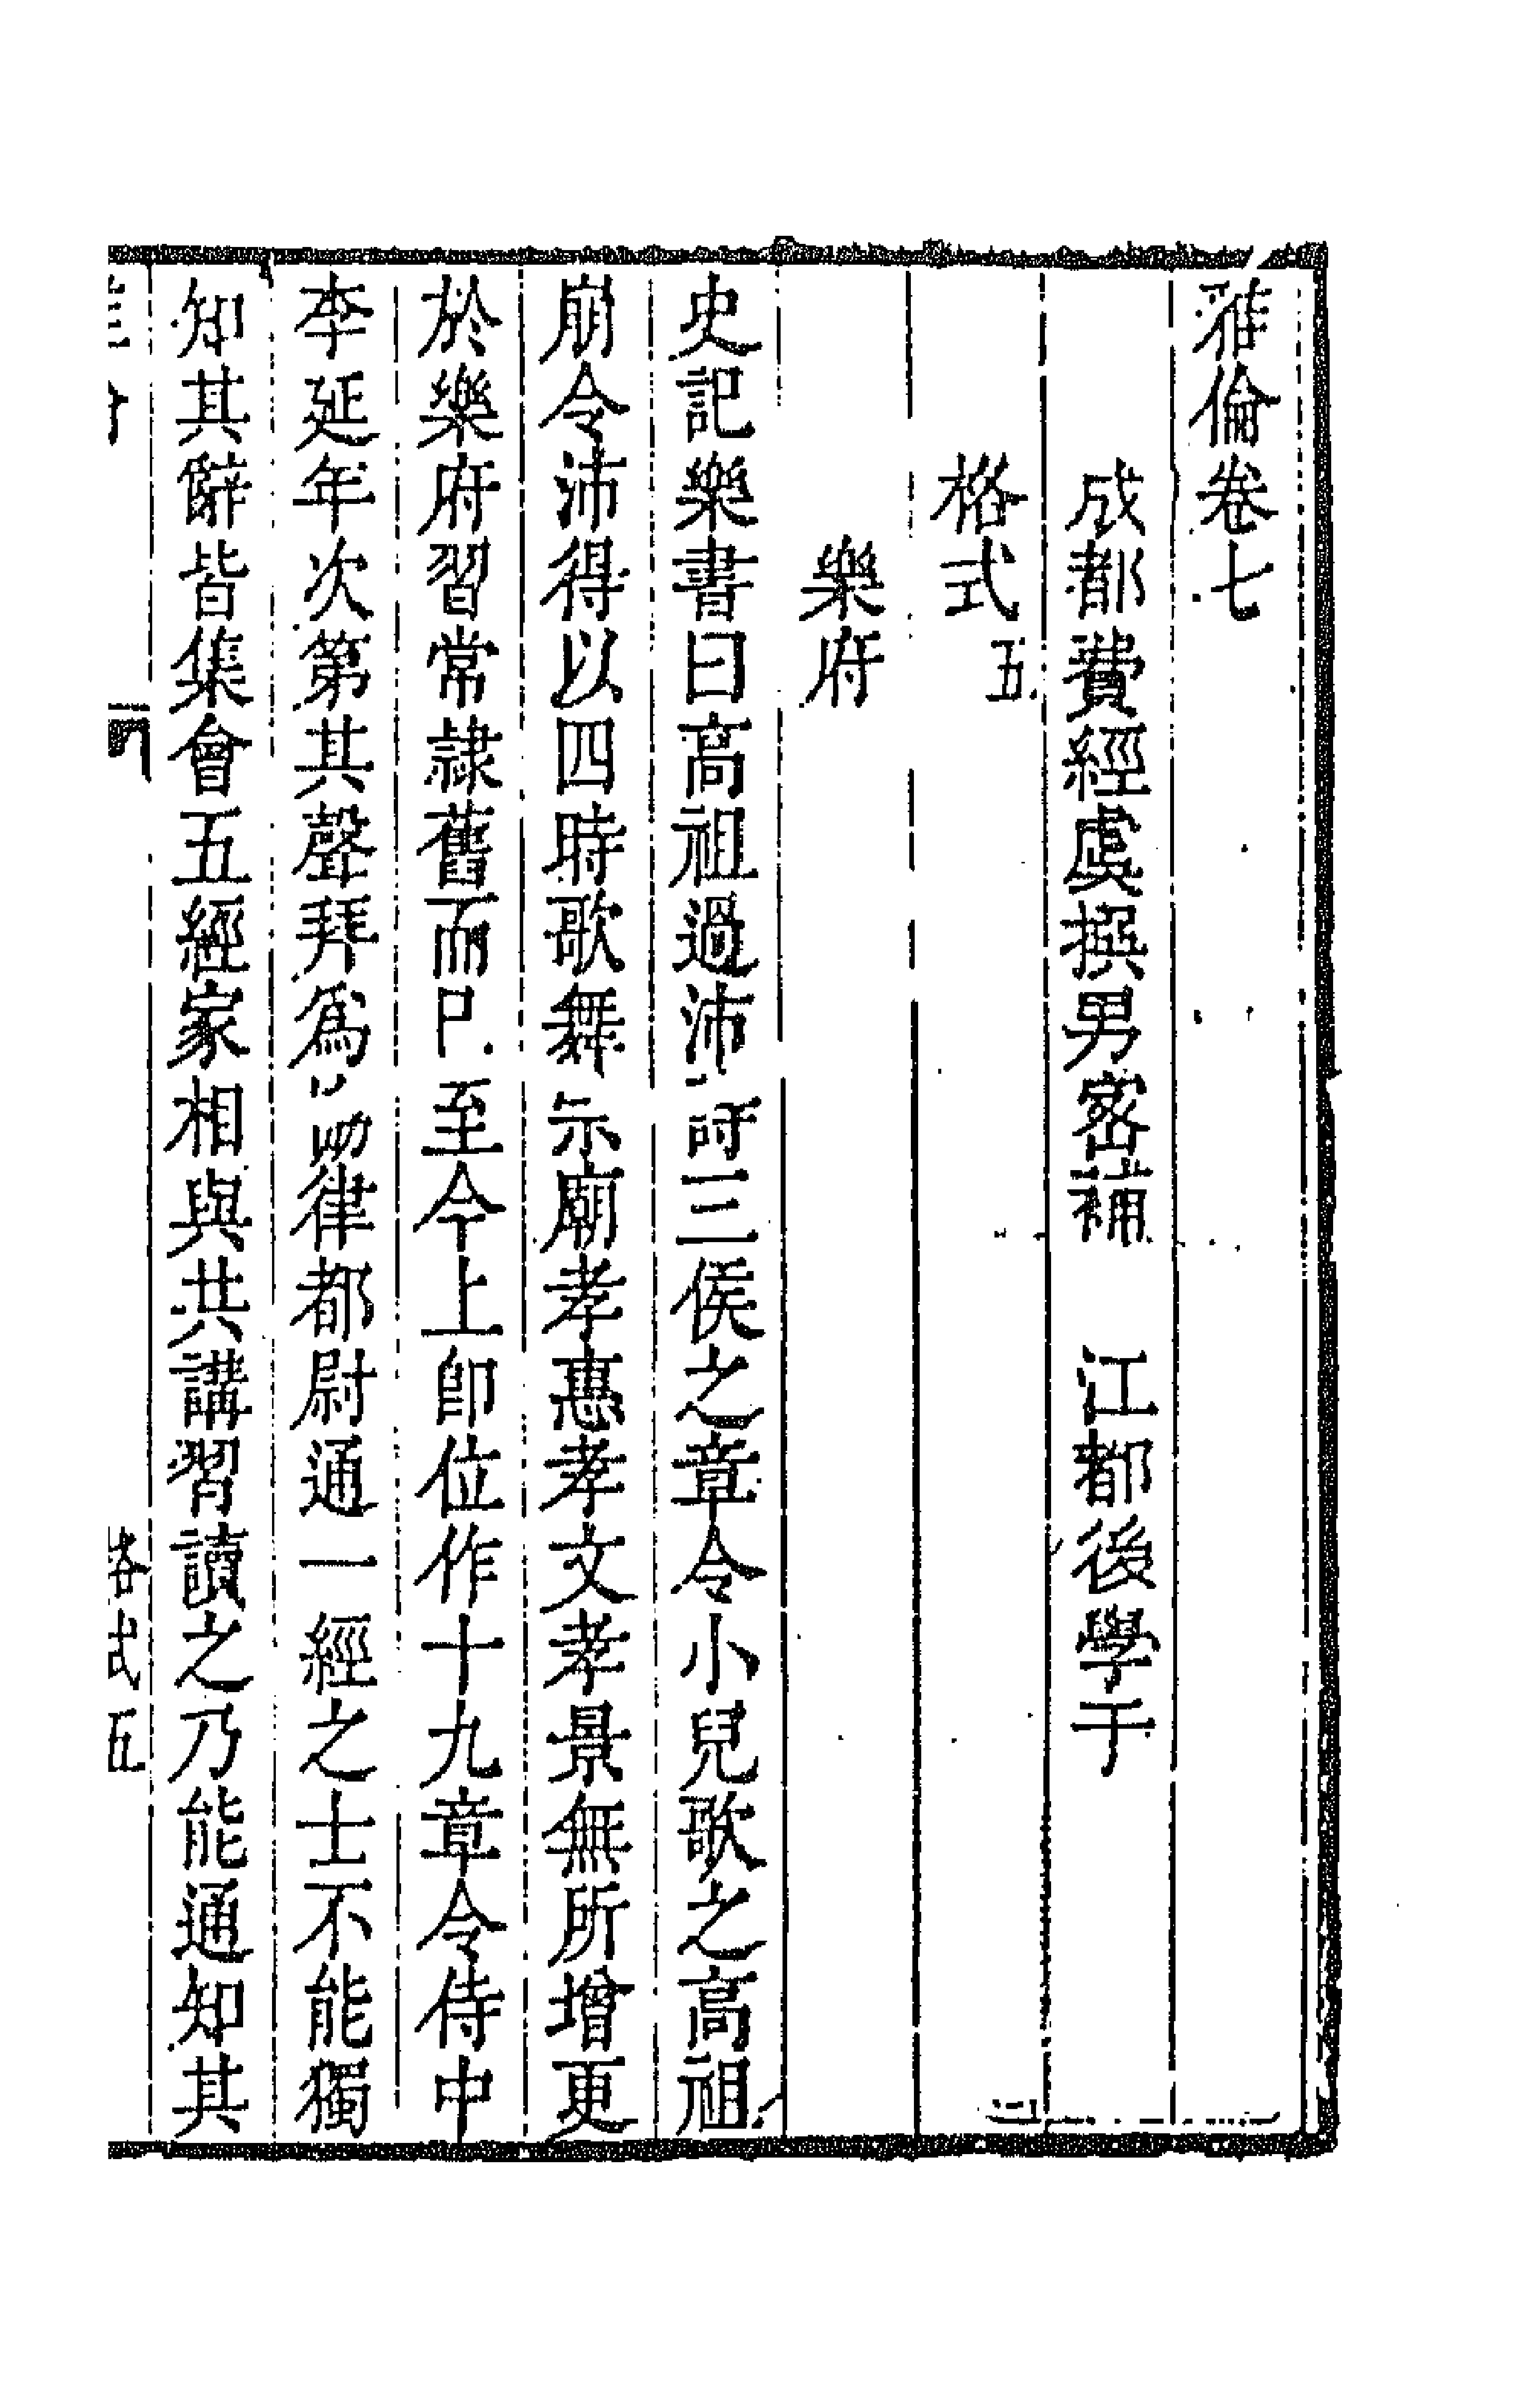 雅倫卷七
成都費經虞撰男密補　江都後學于
格式五
樂府
史記樂書曰高祖過沛詩三侯之章令小兒歌之高祖
崩令沛得以四時歌舞宗廟孝惠孝文孝景無所增更
於樂府習常隷舊而已至今上卽位作十九章令侍中
李延年次第其聲拜爲協律都尉通一經之士不能獨
知其辭皆集會五經家相與共講習讀之乃能通知其
格式五